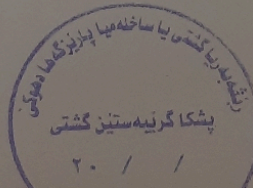 ریڤه‌به‌ریا گشتی یا ساخله‌میا پارێزگه‌ها دهۆکێ
پشکا گرێبه‌ستێن گشتی
٢٠ / /